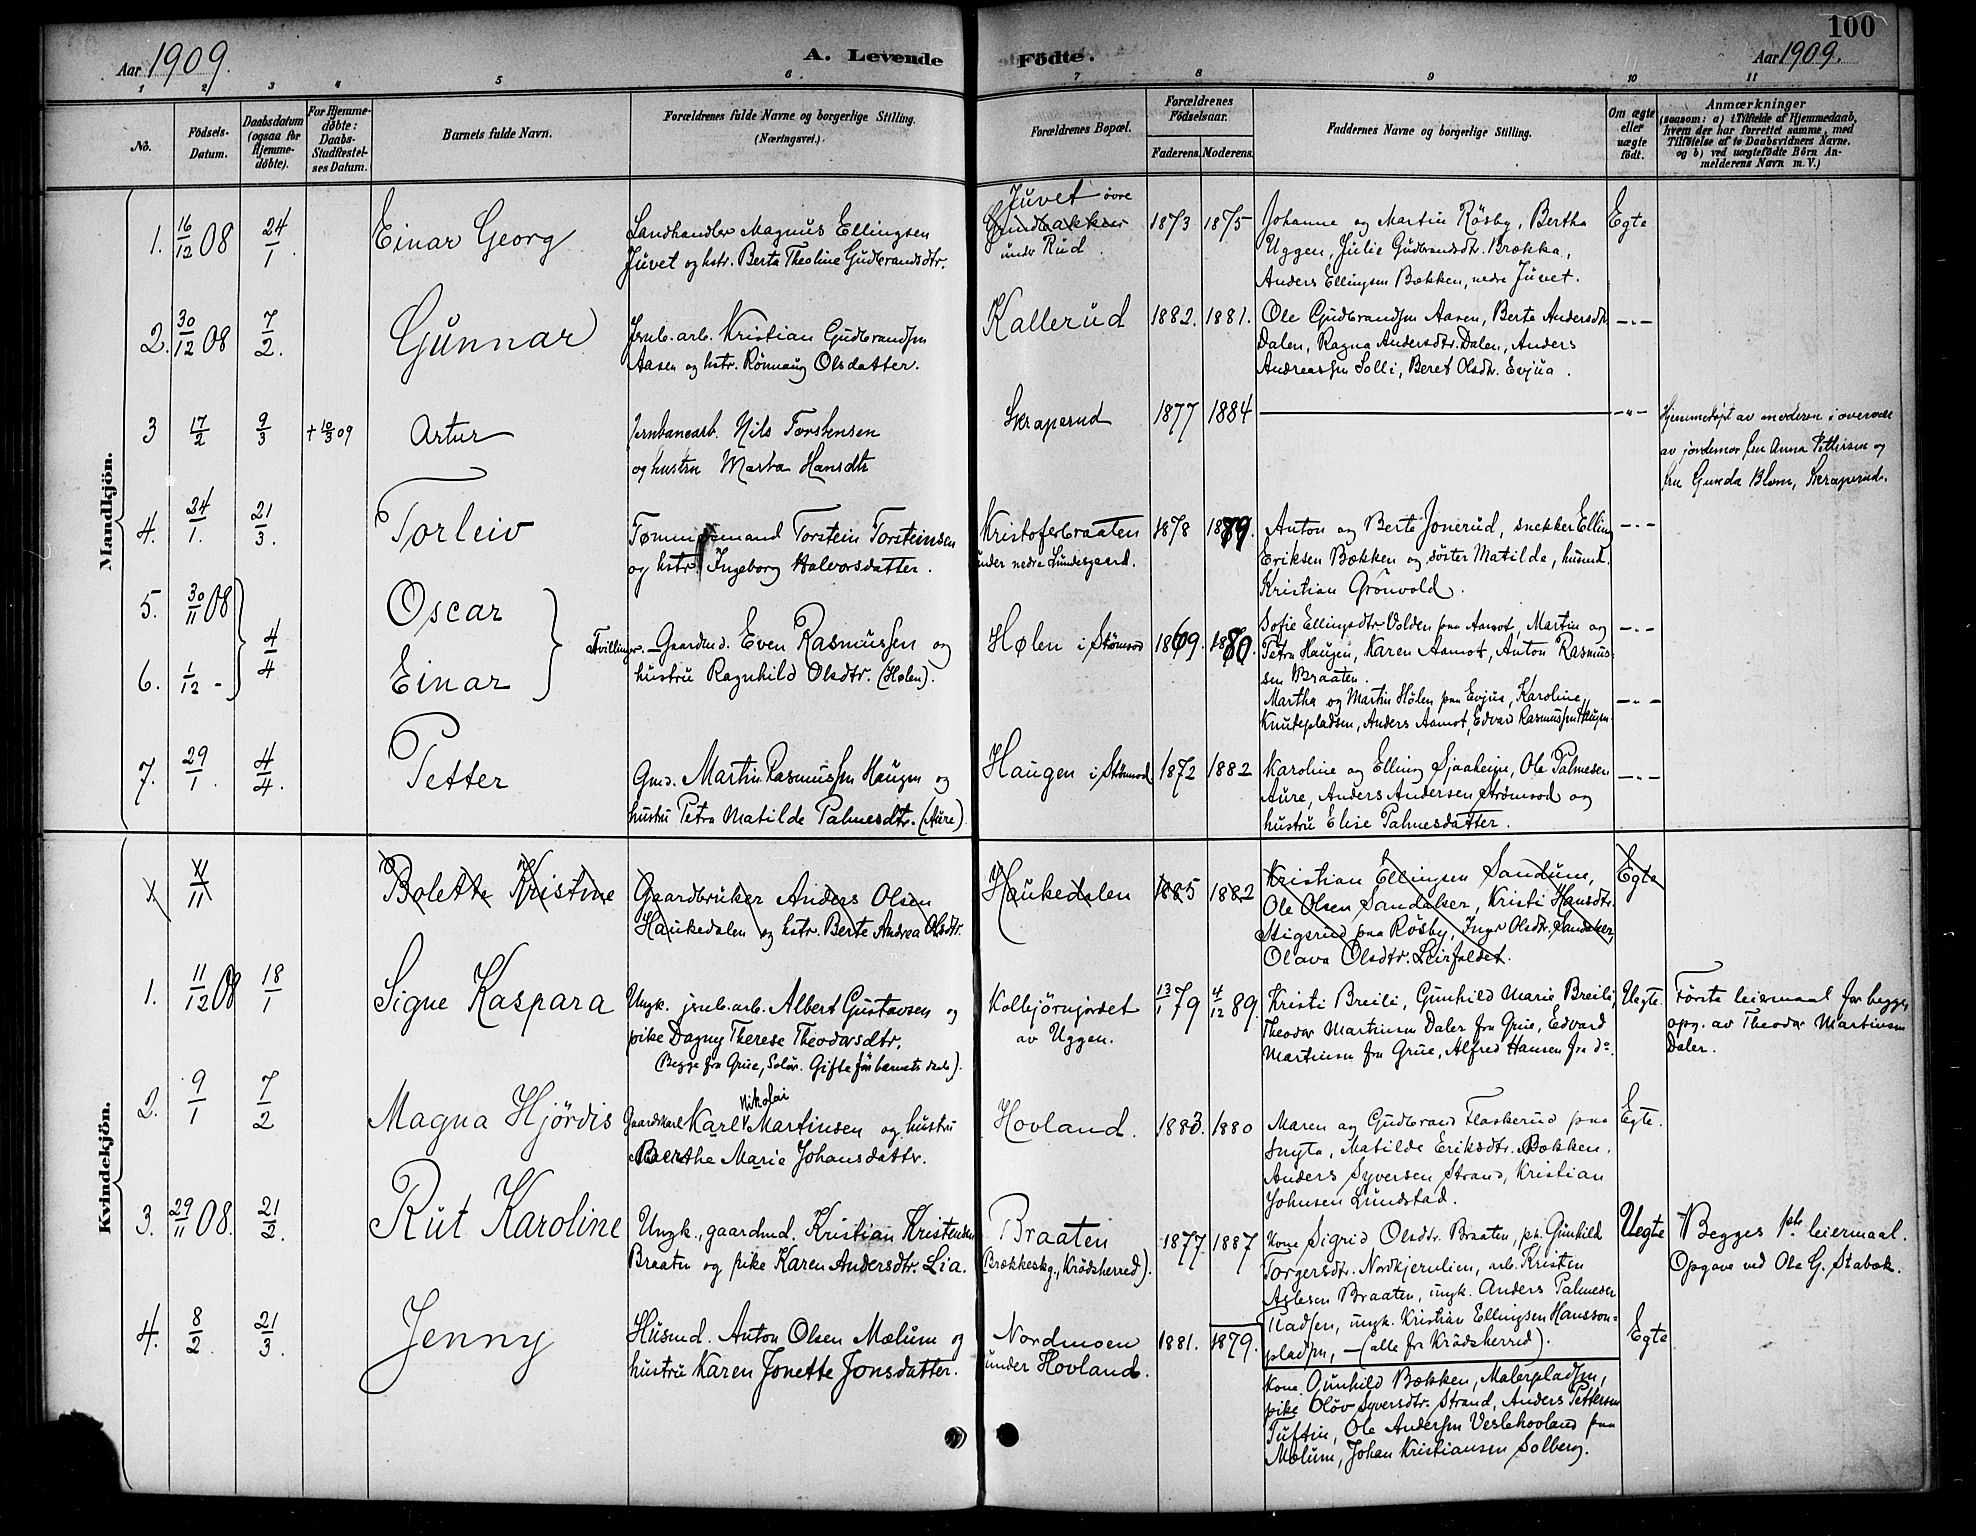 100
Aar 1909.
A. Levende Födte.
Aar 1909.
1 2 3 4 5 6. 7 8 9 10 11
No.
Födsels-Datum.
Daabsdatum (ogsaa for Hjemme-döbte).
For Hjemme-döbte: Daabs-Stadfæstel-ses Datum.
Barnets fulde Navn.
Forældrenes fulde Navne og borgerlige Stilling.
(Næringsvei.)
Forældrenes Bopæl.
Forældrenes Födselsaar.
Faderens. Moderens.
Faddernes Navne og borgerlige Stilling.
Om ægte eller uægte födt.
Anmærkninger
(saasom: a) i Tilfælde af Hjemmedaab, hvem der har forrettet samme, med Tilföielse af to Daabsvidners Navne. og b) ved uægtefödte Börn An-melderens Navn m. V.)
Mandkjön.
1. 16/12 08 24/1. Einar Georg
Landhandler Magnus Ellingsen
Juvet og hstr. Berta Theoline Gudbrandsdtr.
Juvet övre
Grindbakken
under Rud.
1873 1875
Johanne og Martin Rösby, Bertha
Uggen, Julie Gudbrandsdtr. Brækka,
Anders Ellingsen Bækken, nedre Juvet.
Egte
2. 30/12 08 7/2. Gunnar
Jernb. arb. Kristian Gudbrandsen
Aasen og hstr. Rönnaug Olsdatter.
Kallerud 1882. 1881.
Ole Gudbrandsen Aasen, Berte Andersdtr.
Dalen, Ragna Andersdtr. Dalen, Anders
Andreassen Solli, Beret Olsdtr. Evjua.
—"—
3 17/2 9/3 + 10/3 09 Artur
Jernbanearb. Nils Torstensen
og hustru Marta Hansdtr
Skraperud 1877 1884 — —"—
Hjemmedöpt av moderen i overvær
av jordemor fru Anna Pettersen og
fru Gunda Blom, Skraperud.
4. 24/1. 21/3. Torleiv
Tømmermand Torstein Torsteinsen
og hstr Ingeborg Halvorsdatter.
Kristoferbraaten
under nedre Lundesgaard.
1878 1879.
Anton og Berte Jonerud, snekker Elling
Eriksen Bækken og söster Matilde, husmd.
Kristian Grönvold.
—"—
5. 30/11 08 Oscar
6. 1/12 - 4/4 Einar
Tvillinger. Gaardmd. Even Rasmussen og
hustru Ragnhild Olsdtr. (Hølen).
Hølen i Strømsod 1869. 1880.
Sofie Ellingsdtr Volden paa Aamot, Martin og
Petra Haugen, Karen Aamot, Anton Rasmus-
sen Braaten.
Martha og Martin Hølen paa Evjua, Karoline
Knutepladsen, Anders Aamot, Edvard Rasmussen Haugen.
—"—
—"—
7. 29/1. 4/4. Petter
Gmd. Martin Rasmussen Haugen og
hustru Petra Matilde Palmesdtr. (Aure)
Haugen i Strømsod 1872 1882
Karoline og Elling Sjaaheim, Ole Palmesen
Aure, Anders Andersen Strømsod og
hustru Elise Palmesdatter.
—"—
Kvindekjön.
Bolette Kristine
Gaardbruker Anders Olsen
Haukedalen og hstr. Berte Andrea Olsdtr.
Haukedalen 1885 1882
Kristian Ellingsen Sandum,
Ole Olsen Sandaker, Kristi Hansdtr.
Stigsrud paa Rösby, Inger Olsdtr. Sandaker,
Olava Olsdtr. Leirfaldet.
Egte
1. 11/12 08 18/1 Signe Kaspara
Ungk. jernb. arb. Albert Gustavsen og
pike Dagny Therese Theodorsdtr.
(Begge fra Grue, Solør. Gifte før barnets daab).
Kolbjörnjordet
av Uggen.
13/1 79 4/12 89.
Kristi Breili, Gunhild Marie Breili,
Theodor Martinsen Daler fra Grue, Edvard
Martinsen fra Grue, Alfred Hansen fra do.
Uegte.
Første leiermaal for begge,
opg. av Theodor Martinsen
Daler.
2. 9/1 7/2 Magna Hjördis
Gaardkarl Karl Nikolai Martinsen og hustru
Berthe Marie Johansdatter.
Hovland. 1883. 1880
Maren og Gudbrand Flaskerud paa
Snyta, Matilde Eriksdtr. Bækken.
Anders Syversen Strand, Kristian
Johnsen Lundstad.
Egte.
3. 29/11 08. 21/2. Rut Karoline
Ungk., gaardmd. Kristian Kristensen
Braaten og pike Karen Andersdtr. Lia.
Braaten
(Brækkeskg., Krödsherred).
1877. 1887
Kone Sigrid Olsdtr. Braaten, pk. Gunhild
Torgersdtr. Nordkjernlien, arb. Kristen
Aslesen Braaten, ungk. Anders Palmesen
Pladsen, ungk. Kristian Ellingsen Hansson-
pladsen, — (alle fra Krödsherred).
Uegte
Begges 1ste leiermaal.
Opgave ved Ole G. Stabæk.
4. 8/2. 21/3. Jenny
Husmd. Anton Olsen Mælum og
hustru Karen Jonette Jonsdatter.
Nordmoen
under Hovland.
1881. 1879.
Kone Gunhild Bækken, Malerpladsen,
pike Olöv Syversdtr. Strand, Anders Pettersen
Tuftin, Ole Andersen Veslehovland paa
Mælum, Johan Kristiansen Solberg.
Egte